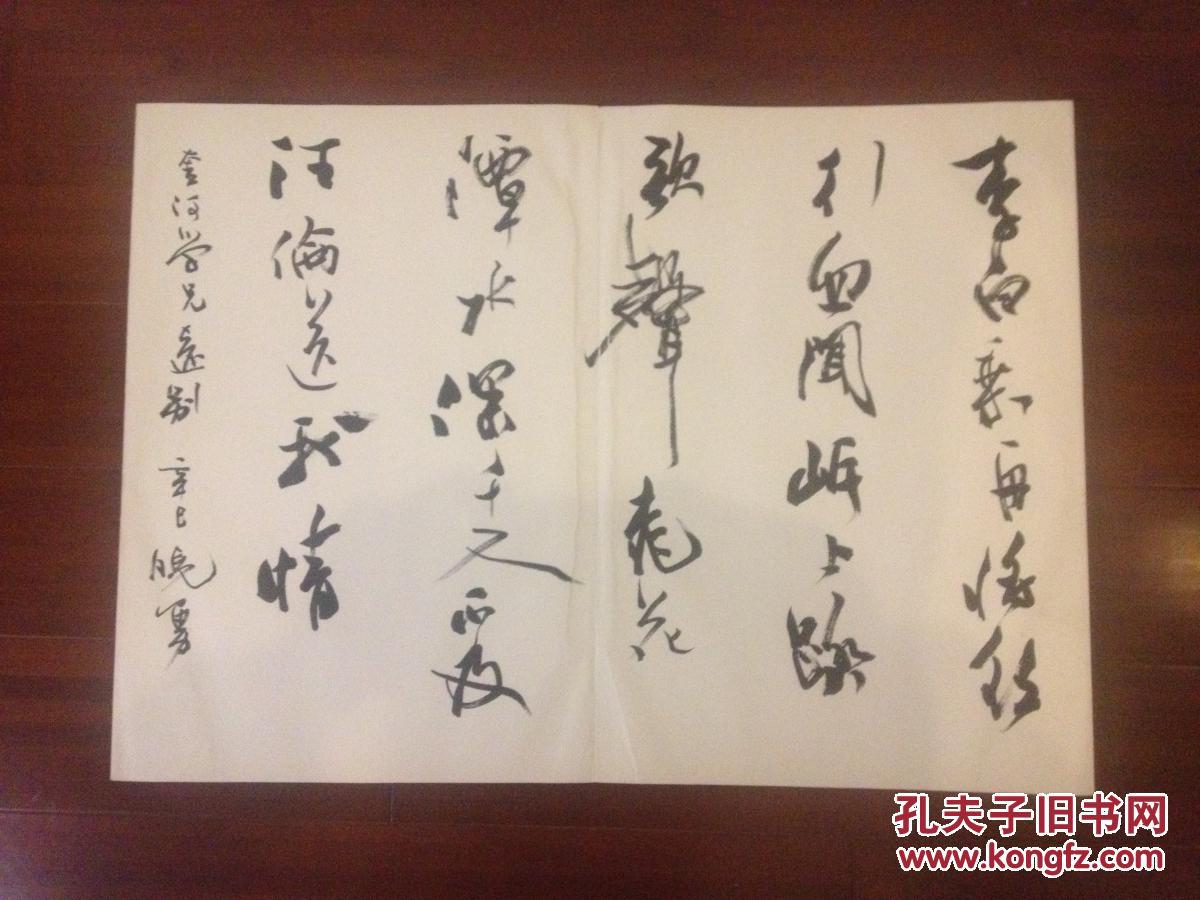 李白乘舟將欲
行忽聞岸上踏
歌聲桃花
潭水深千尺不及
汪倫送我情
河学兄遠別 辛巳 晓勇
孔夫子旧书网
www.kongfz.com